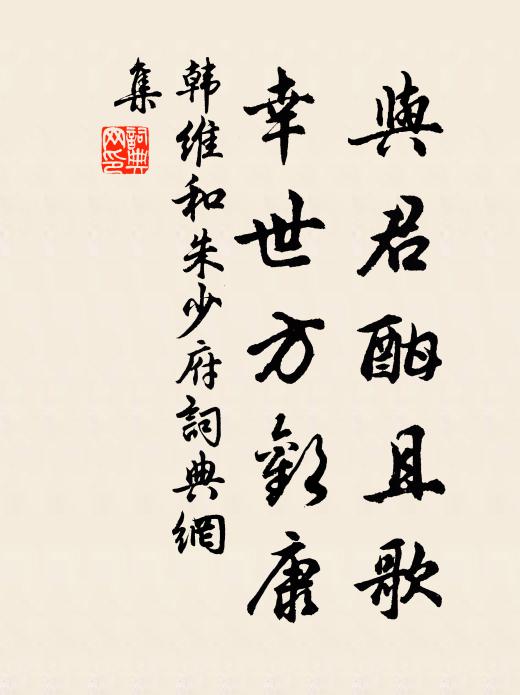 與君酣且歌
幸世方歡康
韩維和朱少府詞典網
集
詞典網印